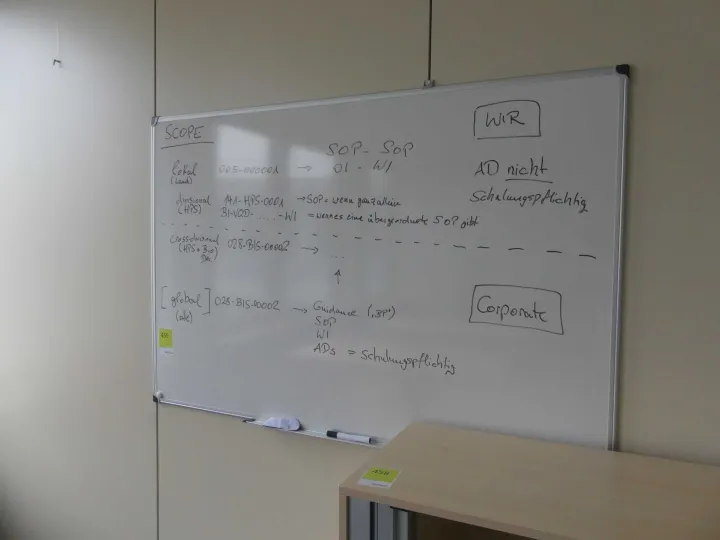 SCOPE
WIR
SOP - SOP
lokal 065-000001 → OI - WI
(Land)
AD nicht
Schulungspflichtig
divisional 141-HPS-0001 → SOP = wenn ganz alleine
(HPS) - WI = wenn es eine übergeordnete SOP gibt
crossdivisional 028-BIS-00002 → ...
(HPS + Bio
↑
[global] 028-BIS-00002 → Guidance („BP")
(alle)
SOP
WI
ADs = Schulungspflichtig
Corporate